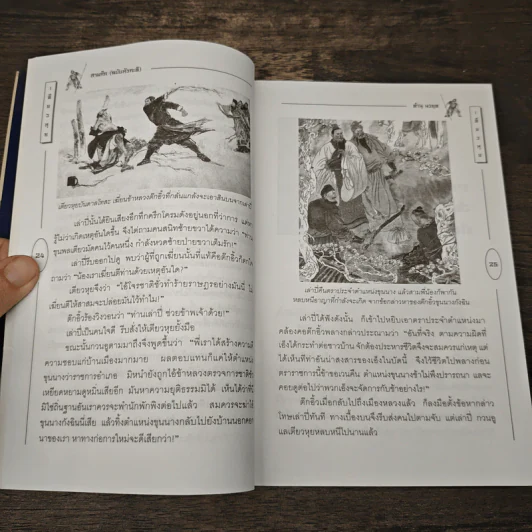 สามก๊ก (ฉบับหัวกะทิ)
เตียวหุยบันดาลโทสะ เฆี่ยนข้าหลวงต๊กอิ้วที่กลั่นแกล้งจะเอาสินบน
เล่าปี่นั้นได้ยินเสียงอึกทึกครึกโครมดังอยู่นอกที่ว่าการ
รู้ไม่ว่าเกิดเหตุอันใดขึ้น จึงไต่ถามคนสนิทซ้ายขวาได้ความว่า "ท่าน
ขุนพลเตียวมัดคนไว้คนหนึ่ง กำลังหวดซ้ายป่ายขวาเต็มรัก!"
เล่าปี่รีบออกไปดู พบว่าผู้ที่ถูกเฆี่ยนนั้นที่แท้คือต๊กอิ้วก็ตกใจ
ถามว่า "น้องเราเฆี่ยนตีท่านด้วยเหตุอันใด?"
เตียวหุยจึงว่า "อ้ายโจรชาติชั่วทำร้ายราษฎรอย่างมันนี้ ไม่
เฆี่ยนตีให้สาสมจะปล่อยมันไว้ทำไม!"
ต๊กอิ้วร้องวิงวอนว่า "ท่านเล่าปี่ ช่วยข้าพเจ้าด้วย!"
เล่าปี่เป็นคนใจดี รีบสั่งให้เตียวหุยยั้งมือ
ขณะนั้นกวนอูตามมาถึงจึงพูดขึ้นว่า "พี่เราได้สร้างความดี
ความชอบแก่บ้านเมืองมากมาย ผลตอบแทนก็แค่ให้ตำแหน่ง
ขุนนางว่าราชการอำเภอ มิหนำยังถูกไอ้ข้าหลวงตรวจการชาติชั่ว
เหยียดหยามดูหมิ่นเสียอีก มันหาความยุติธรรมมิได้ เห็นได้ว่าที่นี่
มิใช่ถิ่นฐานอันเราควรจะพำนักพักพิงต่อไปแล้ว สมควรจะฆ่า
ขุนนางกังฉินนี่เสีย แล้วทิ้งตำแหน่งขุนนางกลับไปยังบ้านนอกคอก
นาของเรา หาทางก่อการใหม่จะดีเสียกว่า!"
24
เล่าปี่คืนตราประจำตำแหน่งขุนนาง แล้วสามพี่น้องก็พากัน
หลบหนีอาญาที่กำลังจะเกิด จากข้อกล่าวหาของต๊กอิ้วขุนนางกังฉิน
เล่าปี่ได้ฟังดังนั้น ก็เข้าไปหยิบเอาตราประจำตำแหน่งมา
คล้องคอต๊กอิ้วพลางกล่าวประณามว่า "อันที่จริง ตามความผิดที่
เอ็งได้กระทำต่อชาวบ้าน จักต้องประหารชีวิตจึงจะสมควรแก่เหตุ แต่
ได้เห็นทีท่าอันน่าสงสารของเอ็งในบัดนี้ จึงไว้ชีวิตไปพลางก่อน
ตราราชการนี้ข้าขอเวนคืน ตำแหน่งขุนนางข้าไม่พึงปรารถนา แลจะ
คอยดูต่อไปว่าพวกเอ็งจะจัดการกับข้าอย่างไร!"
ต๊กอิ้วเมื่อกลับไปถึงเมืองหลวงแล้ว ก็ลงมือตั้งข้อหากล่าว
โทษเล่าปี่ทันที ทางเบื้องบนจึงรีบส่งคนไปตามจับ แต่เล่าปี่ กวนอู
แลเตียวหุยหลบหนีไปนานแล้ว
25